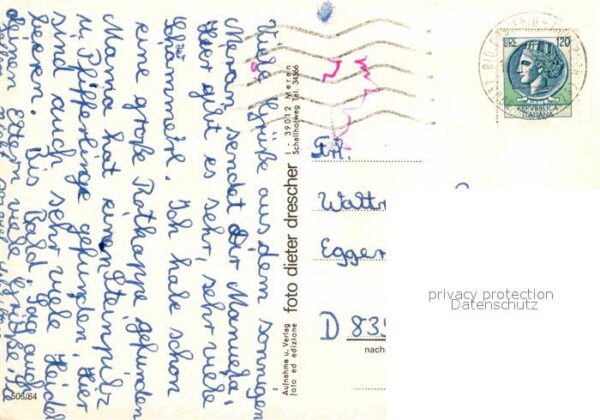 Viele Grüße aus dem sonnigen
Meran sendet Dir Manuela,
Hier gibt es sehr, sehr viele
Schwammerl. Ich habe schon
eine große Rotkappe gefunden
Mama hat einen Steinpilz
u. Pfifferlinge gefunden. Hier
sind auch sehr viele Heidel
beeren. Bis bald sag auch
Deinen Eltern viele Grüße
506/64
Aufnahme u. Verlag
foto ed edizione
foto dieter drescher
I - 39012 Meran
Schallhofweg Tel. 34566
LIRE 120
REPVBBLICA
ITALIANA
Frl.
Waltr
Egger
D 835
nach
privacy protection
Datenschutz